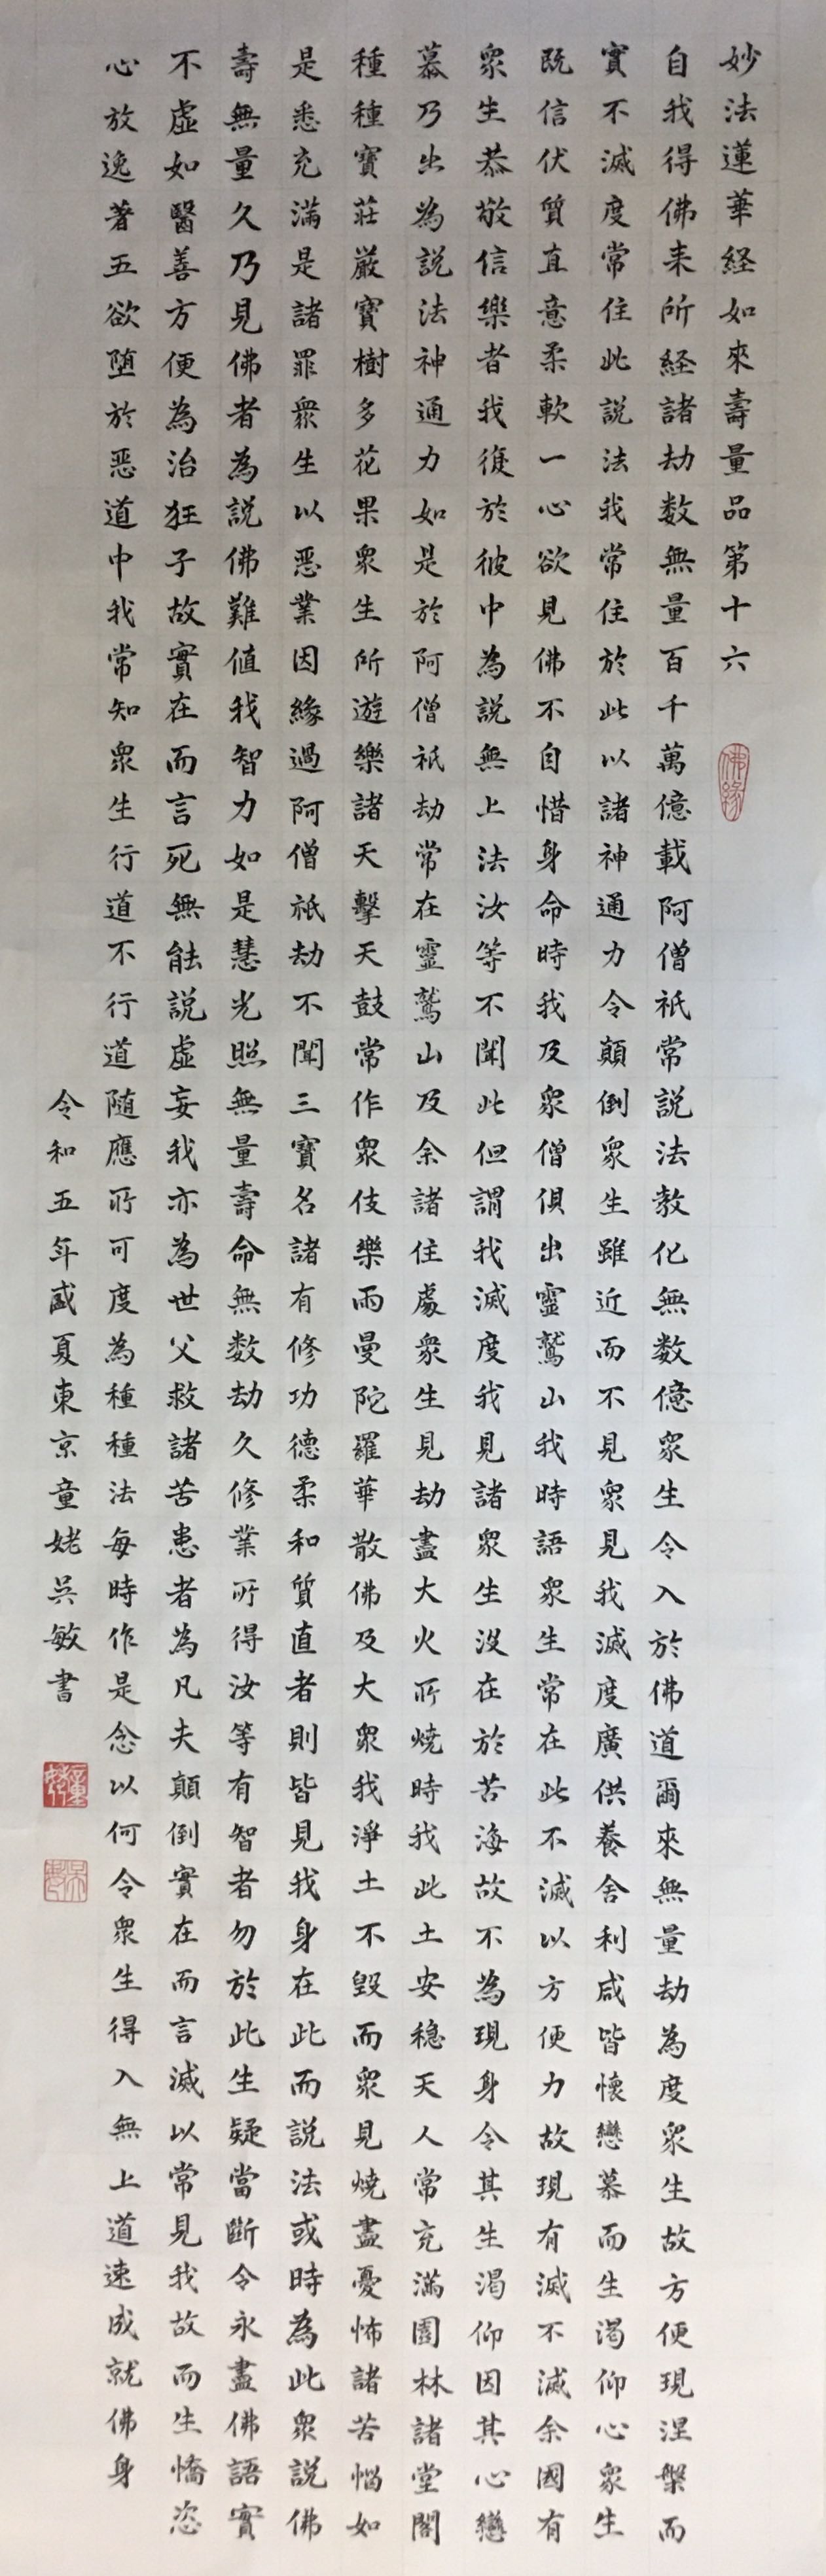 妙法蓮華経如來壽量品第十六
佛緣
自我得佛来所経諸劫数無量百千萬億載阿僧祇常説法教化無数億眾生令入於佛道爾來無量劫為度眾生故方便現涅槃而
實不滅度常住此説法我常住於此以諸神通力令顛倒眾生雖近而不見眾見我滅度廣供養舍利咸皆懷戀慕而生渴仰心眾生
既信伏質直意柔軟一心欲見佛不自惜身命時我及眾僧俱出靈鷲山我時語眾生常在此不滅以方便力故現有滅不滅余國有
眾生恭敬信樂者我復於彼中為説無上法汝等不聞此但謂我滅度我見諸眾生没在於苦海故不為現身令其生渴仰因其心戀
慕乃出為説法神通力如是於阿僧祇劫常在靈鷲山及余諸住處眾生見劫盡大火所燒時我此土安穏天人常充滿園林諸堂閣
種種寶莊厳寶樹多花果眾生所遊樂諸天擊天鼓常作眾伎樂雨曼陀羅華散佛及大眾我淨土不毀而眾見燒盡憂怖諸苦惱如
是悉充滿是諸罪眾生以悪業因緣過阿僧祇劫不聞三寶名諸有修功德柔和質直者則皆見我身在此而説法或時為此眾説佛
壽無量久乃見佛者為説佛難值我智力如是慧光照無量壽命無数劫久修業所得汝等有智者勿於此生疑當斷令永盡佛語實
不虛如醫善方便為治狂子故實在而言死無能説虛妄我亦為世父救諸苦患者為凡夫顛倒實在而言滅以常見我故而生憍恣
心放逸著五欲堕於悪道中我常知眾生行道不行道随應所可度為種種法每時作是念以何令眾生得入無上道速成就佛身
令和五年盛夏東京童姥吳敏書
童姥